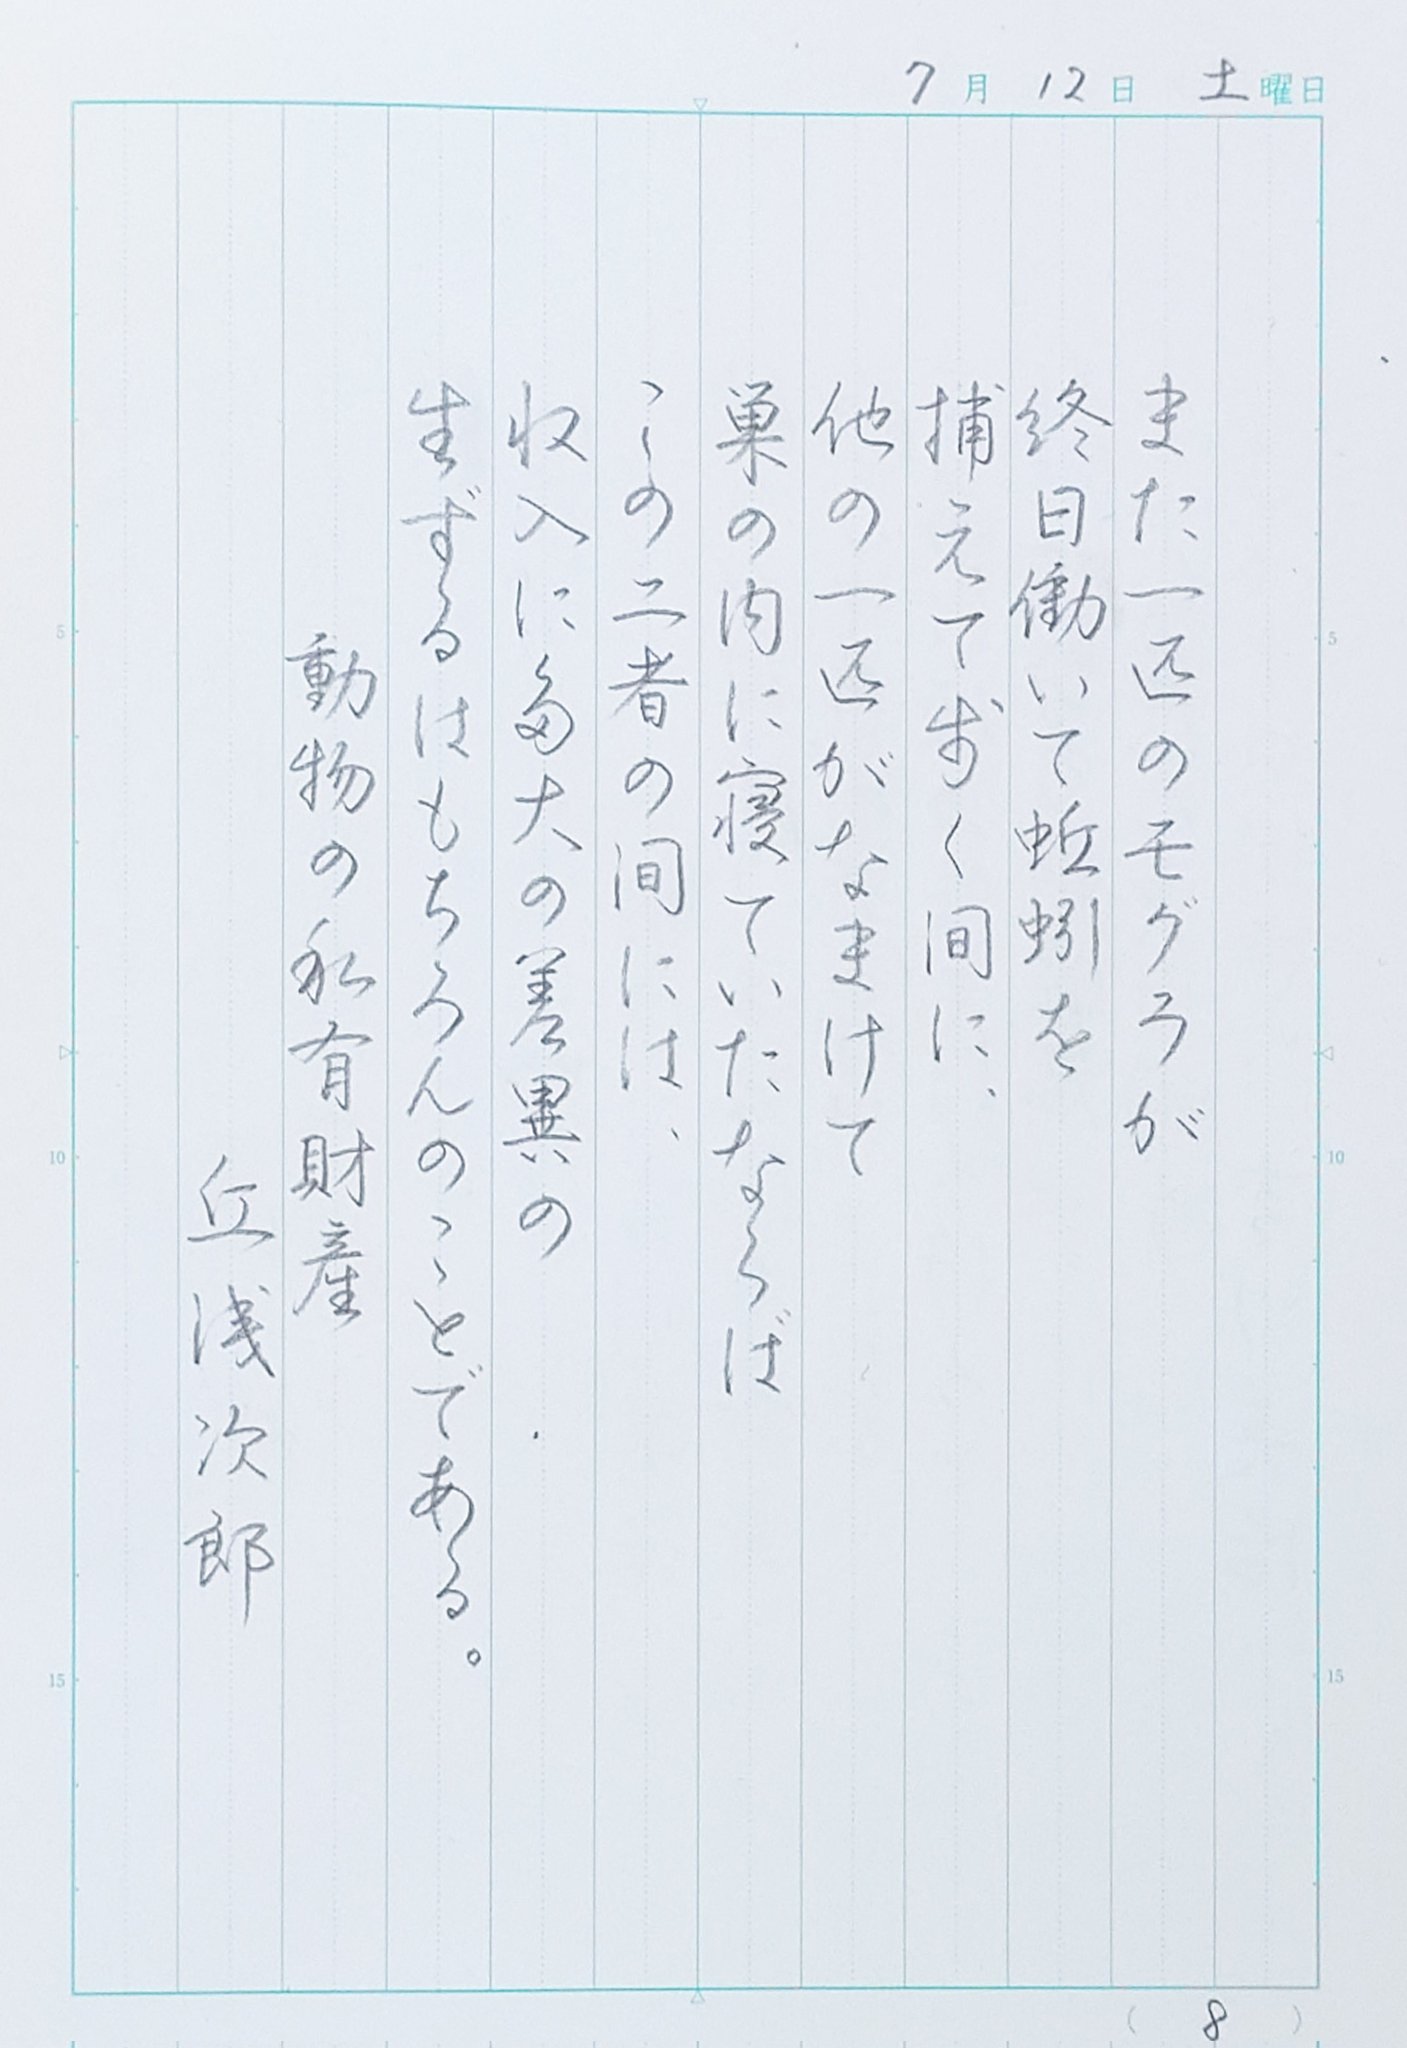 7月12日 土曜日
また一匹のモグラが
終日働いて蚯蚓を
捕えて歩く間に、
他の一匹がなまけて
巣の内に寝ていたならば
この二者の間には、
収入に多大の差異の
生ずるはもちろんのことである。
動物の私有財産
丘浅次郎
5
10
15
5
10
15
(8)